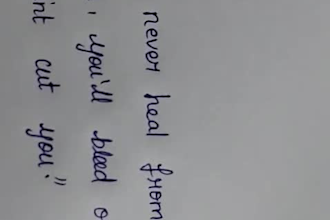 never heal from
, you'll bleed o
int cut you."